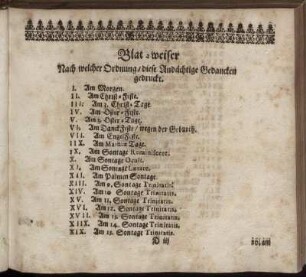 Blat-weiser
Nach welcher Ordnung / diese Andächtige Gedancken
gedruckt.
I. Am Morgen.
II. Am Christ-Feste.
III. Am 3. Christ-Tage.
IV. Am Oster-Feste.
V. Am 3. Oster-Tage.
VI. Am Danck Feste / wegen der Gebuhrt.
VII. Am Engel Feste.
IIX. Am Martins Tage.
IX. Am Sontage Reminiscere.
X. Am Sontage Oculi.
XI. Am Sontage Lætare.
XII. Am Palmen Sontage.
XIII. Am 9. Sontage Trinitatis.
XIV. Am 10. Sontage Trinitatis.
XV. Am 11. Sontage Trinitatis.
XVI. Am 12. Sontage Trinitatis.
XVII. Am 13. Sontage Trinitatis.
XIIX. Am 14. Sontage Trinitatis.
XIX. Am 15. Sontage Trinitatis.